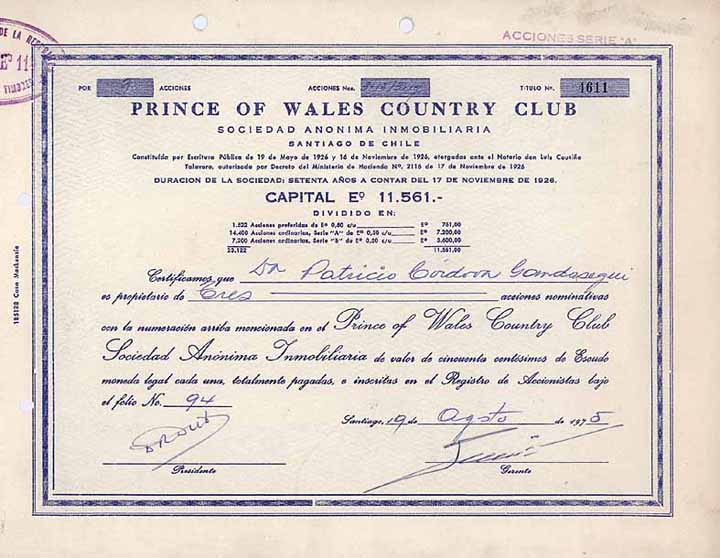 DE LA
Eº 11
ACCIONES SERIE "A"
POR ACCIONES ACCIONES Nos. TITULO Nº. 4611
PRINCE OF WALES COUNTRY CLUB
SOCIEDAD ANONIMA INMOBILIARIA
SANTIAGO DE CHILE
Constituída por Escritura Pública de 19 de Mayo de 1926 y 16 de Noviembre de 1926, otorgadas ante el Notario don Luis Cousiño
Talavera, autorizada por Decreto del Ministerio de Hacienda Nº. 2116 de 17 de Noviembre de 1926
DURACION DE LA SOCIEDAD: SETENTA AÑOS A CONTAR DEL 17 DE NOVIEMBRE DE 1926.
CAPITAL Eº 11.561.-
DIVIDIDO EN:
1.522 Acciones preferidas de Eº 0,50 c/u Eº 761,00
14.400 Acciones ordinarias, Serie "A" de Eº 0,50 c/u Eº 7.200,00
7.200 Acciones ordinarias, Serie "B" de Eº 0,50 c/u Eº 3.600,00
23.122 11.561,00
Certificamos que Dn Patricio Córdova Gandasegui
es propietario de Tres acciones nominativas
con la numeración arriba mencionada en el Prince of Wales Country Club
Sociedad Anónima Inmobiliaria de valor de cincuenta centésimos de Escudo
moneda legal cada una, totalmente pagadas, e inscritas en el Registro de Accionistas bajo
el folio No. 94
Santiago, 19 de Agosto de 1975
Presidente Gerente
165128 Casa Mackenzie